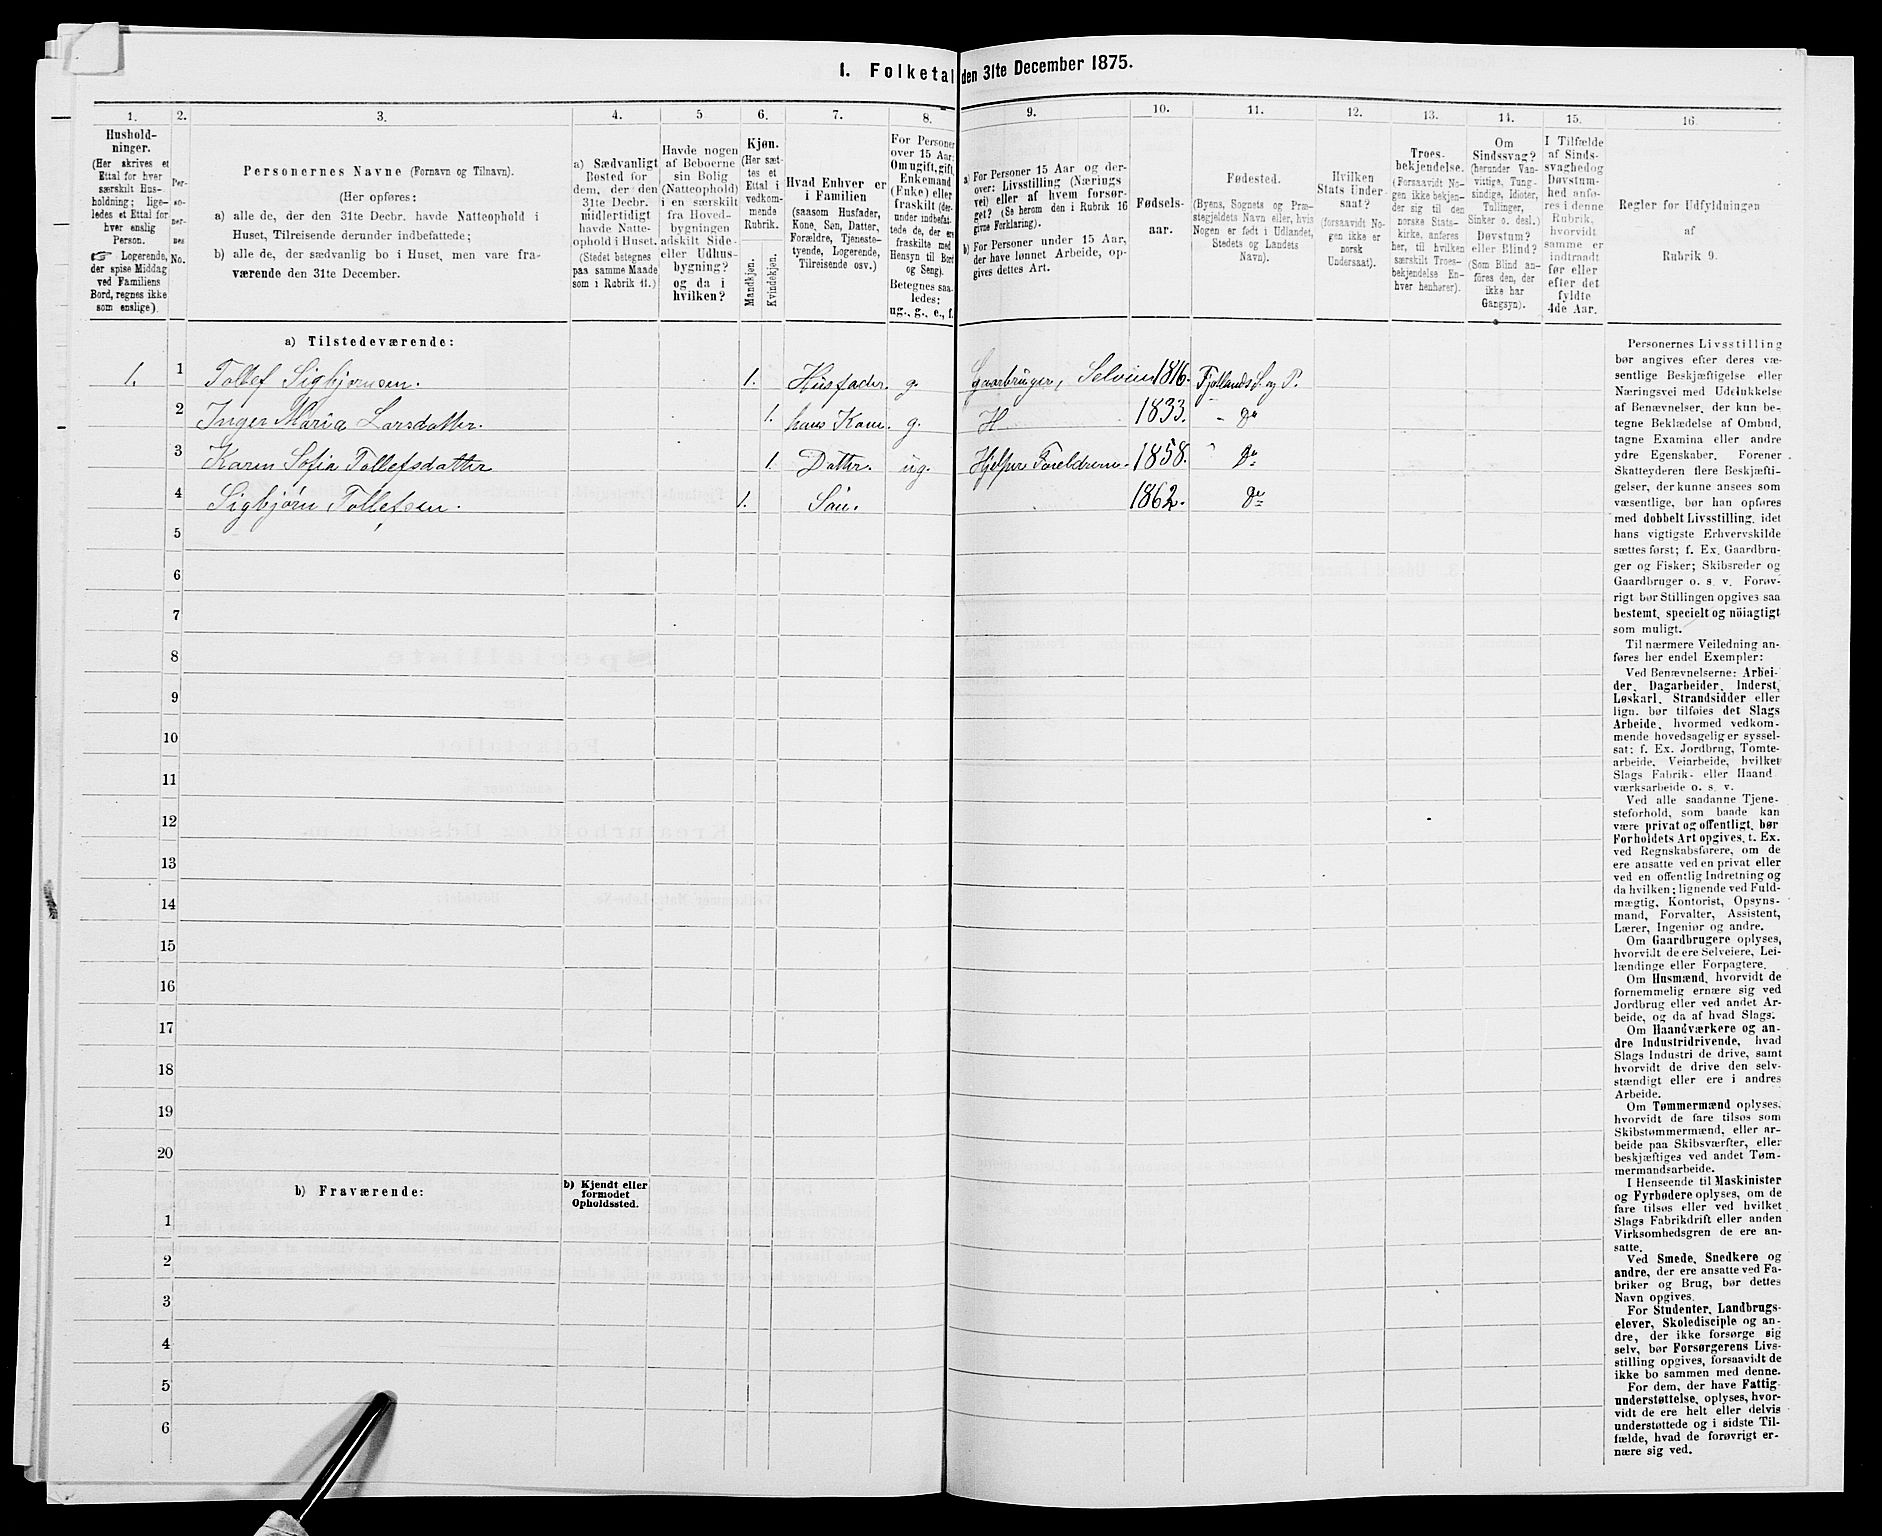 1. Folketal den 31te December 1875.
1. 2. 3. 4. 5 6. 7. 8. 9. 10. 11. 12. 13. 14. 15. 16.
Hushold-
ninger.
(Her skrives et
Ettal for hver
særskilt Hus-
holdning; lige-
ledes et Ettal for
hver enslig
Person.
☞ Logerende,
der spise Middag
ved Familiens
Bord, regnes ikke
som enslige).
Per-
so-
ner-
nes
No.
Personernes Navne (Fornavn og Tilnavn).
(Her opføres:
a) alle de, der den 31te Decbr. havde Natteophold i
Huset, Tilreisende derunder indbefattede;
b) alle de, der sædvanlig bo i Huset, men vare fra-
værende den 31te December.
a) Sædvanligt
Bosted for
dem, der den
31te Decbr.
midlertidigt
havde Natte-
ophold i Huset.
(Stedet betegnes
paa samme Maade
som i Rubrik 11.)
Havde nogen
af Beboerne
sin Bolig
(Natteophold)
i en særskilt
fra Hoved-
bygningen
adskilt Side-
eller Udhus-
bygning?
og da i
hvilken?
Kjøn.
(Her sæt-
tes et
Ettal i
vedkom-
mende
Rubrik.
Mandkjøn.
Kvindekjøn.
Hvad Enhver er
i Familien
(saasom Husfader,
Kone, Søn, Datter,
Forældre, Tjeneste-
tyende, Logerende,
Tilreisende osv.)
For Personer
over 15 Aar:
Om ugift, gift,
Enkemand
(Enke) eller
fraskilt (der-
under indbefat-
tede de, der ere
fraskilte med
Hensyn til Bord
og Seng).
Betegnes saa-
ledes:
ug., g., e., f.
a) For Personer 15 Aar og der-
over: Livsstilling (Nærings
vei) eller af hvem forsør-
get? (Se herom den i Rubrik 16
givne Forklaring).
b) For Personer under 15 Aar,
der have lønnet Arbeide, op-
gives dettes Art.
Fødsels-
aar.
Fødested.
(Byens, Sognets og Præ-
stegjeldets Navn eller, hvis
Nogen er født i Udlandet,
Stedets og Landets
Navn).
Hvilken
Stats Under-
saat?
(forsaavidt No-
gen ikke er
norsk
Undersaat).
Troes-
bekjendelse.
(Forsaavidt No-
gen ikke bekjen-
der sig til den
norske Stats-
kirke, anføres
her, til hvilken
særskilt Troes-
bekjendelse En-
hver henhører).
Om
Sindssvag?
(herunder Van-
vittige, Tung-
sindige, Idioter,
Tullinger,
Sinker o. desl.)
Døvstum?
eller Blind?
(Som Blind an-
føres den, der
ikke har
Gangsyn).
I Tilfælde
af Sinds-
svaghed og
Døvstum-
hed anfø-
res i denne
Rubrik,
hvorvidt
samme er
indtraadt
før eller
efter det
fyldte
4de Aar.
Regler for Udfyldningen
af
Rubrik 9.
a) Tilstedeværende:
1. 1 Tollef Sigbjørnsen. 1. Husfader. g. Gaarbruger, Selveier 1816. Fjotlands S. og P.
2 Inger Maria Larsdatter. 1. hans Kone. g. H 1833. " do
3 Karen Sofia Tollefsdatter 1. Datter. ug. Hjelper Foreldrene. 1858. " do
4 Sigbjørn Tollefsen. 1. Søn. 1862. do
5
6
7
8
9
10
11
12
13
14
15
16
17
18
19
20
b) Fraværende:
b) Kjendt eller
formodet
Opholdssted.
1
2
3
4
5
6
Personernes Livsstilling
bør angives efter deres væ-
sentlige Beskjæftigelse eller
Næringsvei med Udelukkelse
af Benævnelser, der kun be-
tegne Beklædelse af Ombud,
tagne Examina eller andre
ydre Egenskaber. Forener
Skatteyderen flere Beskjæfti-
gelser, der kunne ansees som
væsentlige, bør han opføres
med dobbelt Livsstilling, idet
hans vigtigste Erhvervskilde
sættes først; f. Ex. Gaardbru-
ger og Fisker; Skibsreder og
Gaardbruger o. s. v. Forøv-
rigt bør Stillingen opgives saa
bestemt, specielt og nöiagtigt
som muligt.
Til nærmere Veiledning an-
føres her endel Exempler:
Ved Benævnelserne: Arbei-
der, Dagarbeider, Inderst,
Løskarl, Strandsidder eller
lign. bør tilføies det Slags
Arbeide, hvormed vedkom-
mende hovedsagelig er syssel-
sat; f. Ex. Jordbrug, Tomte-
arbeide, Veiarbeide, hvilket
Slags Fabrik- eller Haand
værksarbeide o. s. v.
Ved alle saadanne Tjene-
steforhold, som baade kan
være privat og offentligt, bør
Forholdets Art opgives, t. Ex.
ved Regnskabsførere, om de
ere ansatte ved en privat eller
ved en offentlig Indretning og
da hvilken; lignende ved Fuld-
mægtig, Kontorist, Opsyns-
mand, Forvalter, Assistent,
Lærer, Ingeniør og andre.
Om Gaardbrugere oplyses,
hvorvidt de ere Selveiere, Lei-
lændinge eller Forpagtere.
Om Husmænd, hvorvidt de
fornemmelig ernære sig ved
Jordbrug eller ved andet Ar-
beide, og da af hvad Slags.
Om Haandværkere og an-
dre Industridrivende, hvad
Slags Industri de drive, samt
hvorvidt de drive den selv-
stændigt eller ere i andres
Arbeide.
Om Tømmermænd oplyses,
hvorvidt de fare tilsøs som
Skibstømmermænd, eller ar-
beide paa Skibsværfter, eller
beskjæftiges ved andet Tøm-
mermandsarbeide.
I Henseende til Maskinister
og Fyrbødere oplyses, om de
fare tilsøs eller ved hvilket
Slags Fabrikdrift eller anden
Virksomhedsgren de ere an-
satte.
Ved Smede, Snedkere og
andre, der ere ansatte ved Fa-
briker og Brug, bør dettes
Navn opgives.
For Studenter, Landbrugs-
elever, Skoledisciple og an-
dre, der ikke forsørge sig
selv, bør Forsørgerens Livs-
stilling opgives, forsaavidt de
ikke bo sammen med denne.
For dem, der have Fattig-
understøttelse, oplyses, hvor-
vidt de ere helt eller delvis
understøttede og i sidste Til-
fælde, hvad de forøvrigt er-
nære sig ved.